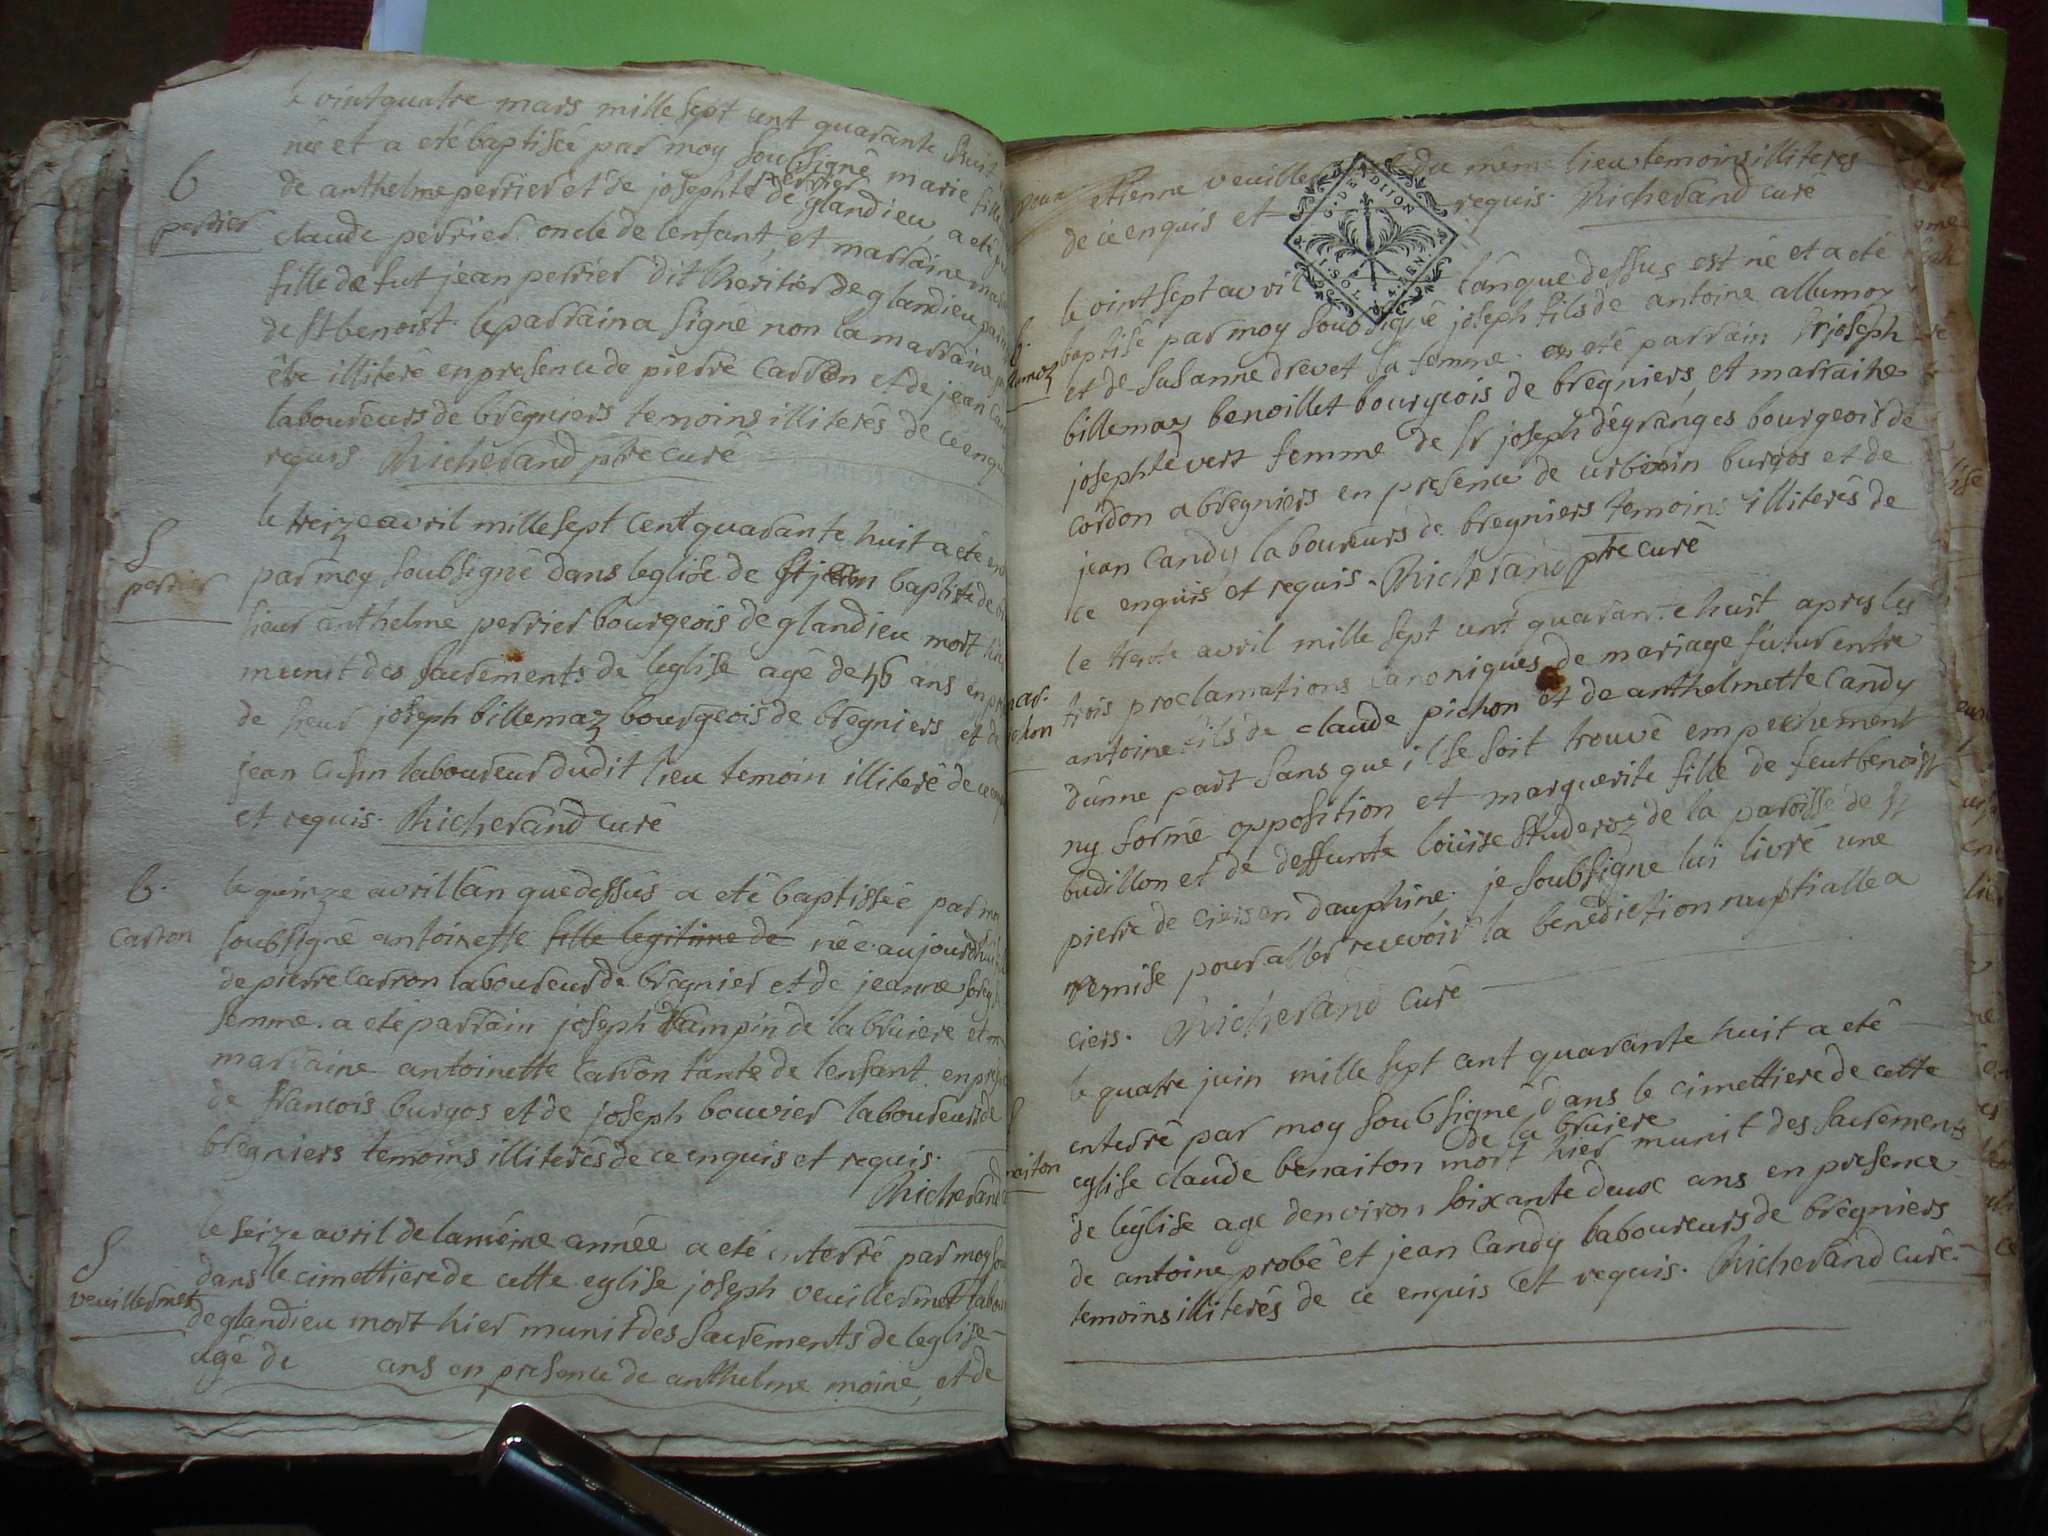 le vint quatre mars mille sept cent quarante huit
née et a eté baptisée par moy soubsigné marie fille
b
perrier
de anthelme perrier et de josephte perrier de glandieu, a eté
claude perrier oncle de lenfant, et marraine
fille de fut jean perrier dit lheritier de glandieu
de st benoist. le parrain a signé non la marraine
être illiteré en presence de pierre Carron et de jean
laboureurs de brégniers temoins illiterés de ce enquis
requis Richerand ptre curé
le treize avril mille sept cent quarante huit a eté
S
perrier
par moy soubsigné dans leglise de st jean baptiste de
sieur anthelme perrier bourgeois de glandieu mort hier
munit des sacrements de leglise agé de ans en
de sieur joseph billemaz bourgeois de brégniers et de
jean cusin laboureur dudit lieu temoin illiteré de ce
et requis. Richerand curé
b.
Carron
le quinze avril lan que dessus a eté baptissée par
soubsigné antoinette fille legitime de née aujourdhui
de pierre Carron laboureur de brégnier et de jeanne
femme. a eté parrain joseph de la bruiere et
marraine antoinette Carron tante de lenfant en
de francois burgos et de joseph bouvier laboureurs de
brégniers temoins illiterés de ce enquis et requis.
Richerand
S
veuillermet
le seize avril de la même année a eté enterré par moy
dans le cimettiere de cette eglise joseph veuillermet
de glandieu mort hier munit des sacrements de leglise
agé de ans en presence de anthelme moine, et de
etienne du même lieu temoins illiteres
de ce enquis et requis. Richerand curé
G. DE DIJON
le vint sept avril lan que dessus est né et a eté
baptisé par moy soubsigné joseph fils de antoine allumoz
et de susanne drevet sa femme. eté parrain sr joseph
billemaz benoillet bourgeois de brégniers, et marraine
josephte vert femme de sr joseph dégranges bourgeois de
cordon a brégniers en presence de urbain burgos et de
jean Candy laboureurs de bregniers temoins illiterés de
ce enquis et requis. Richerand ptre curé
mar.
le trente avril mille sept cent quarante huit apres les
trois proclamations canoniques de mariage futur entre
antoine fils de claude pichon et de anthelmette Candy
dunne part sans que il se soit trouvé empechement
ny formé opposition et marguerite fille de feut benoist
budillon et de deffunte loüise de la paroisse de st
pierre de ciers en dauphiné. je soubsigné lui livré une
remise pour aller recevoir la benediction nuptialle a
ciers. Richerand Curé
le quatre juin mille sept cent quarante huit a eté
enterré par moy soubsigné dans le cimettiere de cette
de la bruiere
eglise claude benaiton mort hier munit des sacrements
de léglise agé denviron soixante deux ans en presence
de antoine probé et jean Candy laboureurs de brégniers
temoins illiterés de ce enquis et requis. Richerand curé.